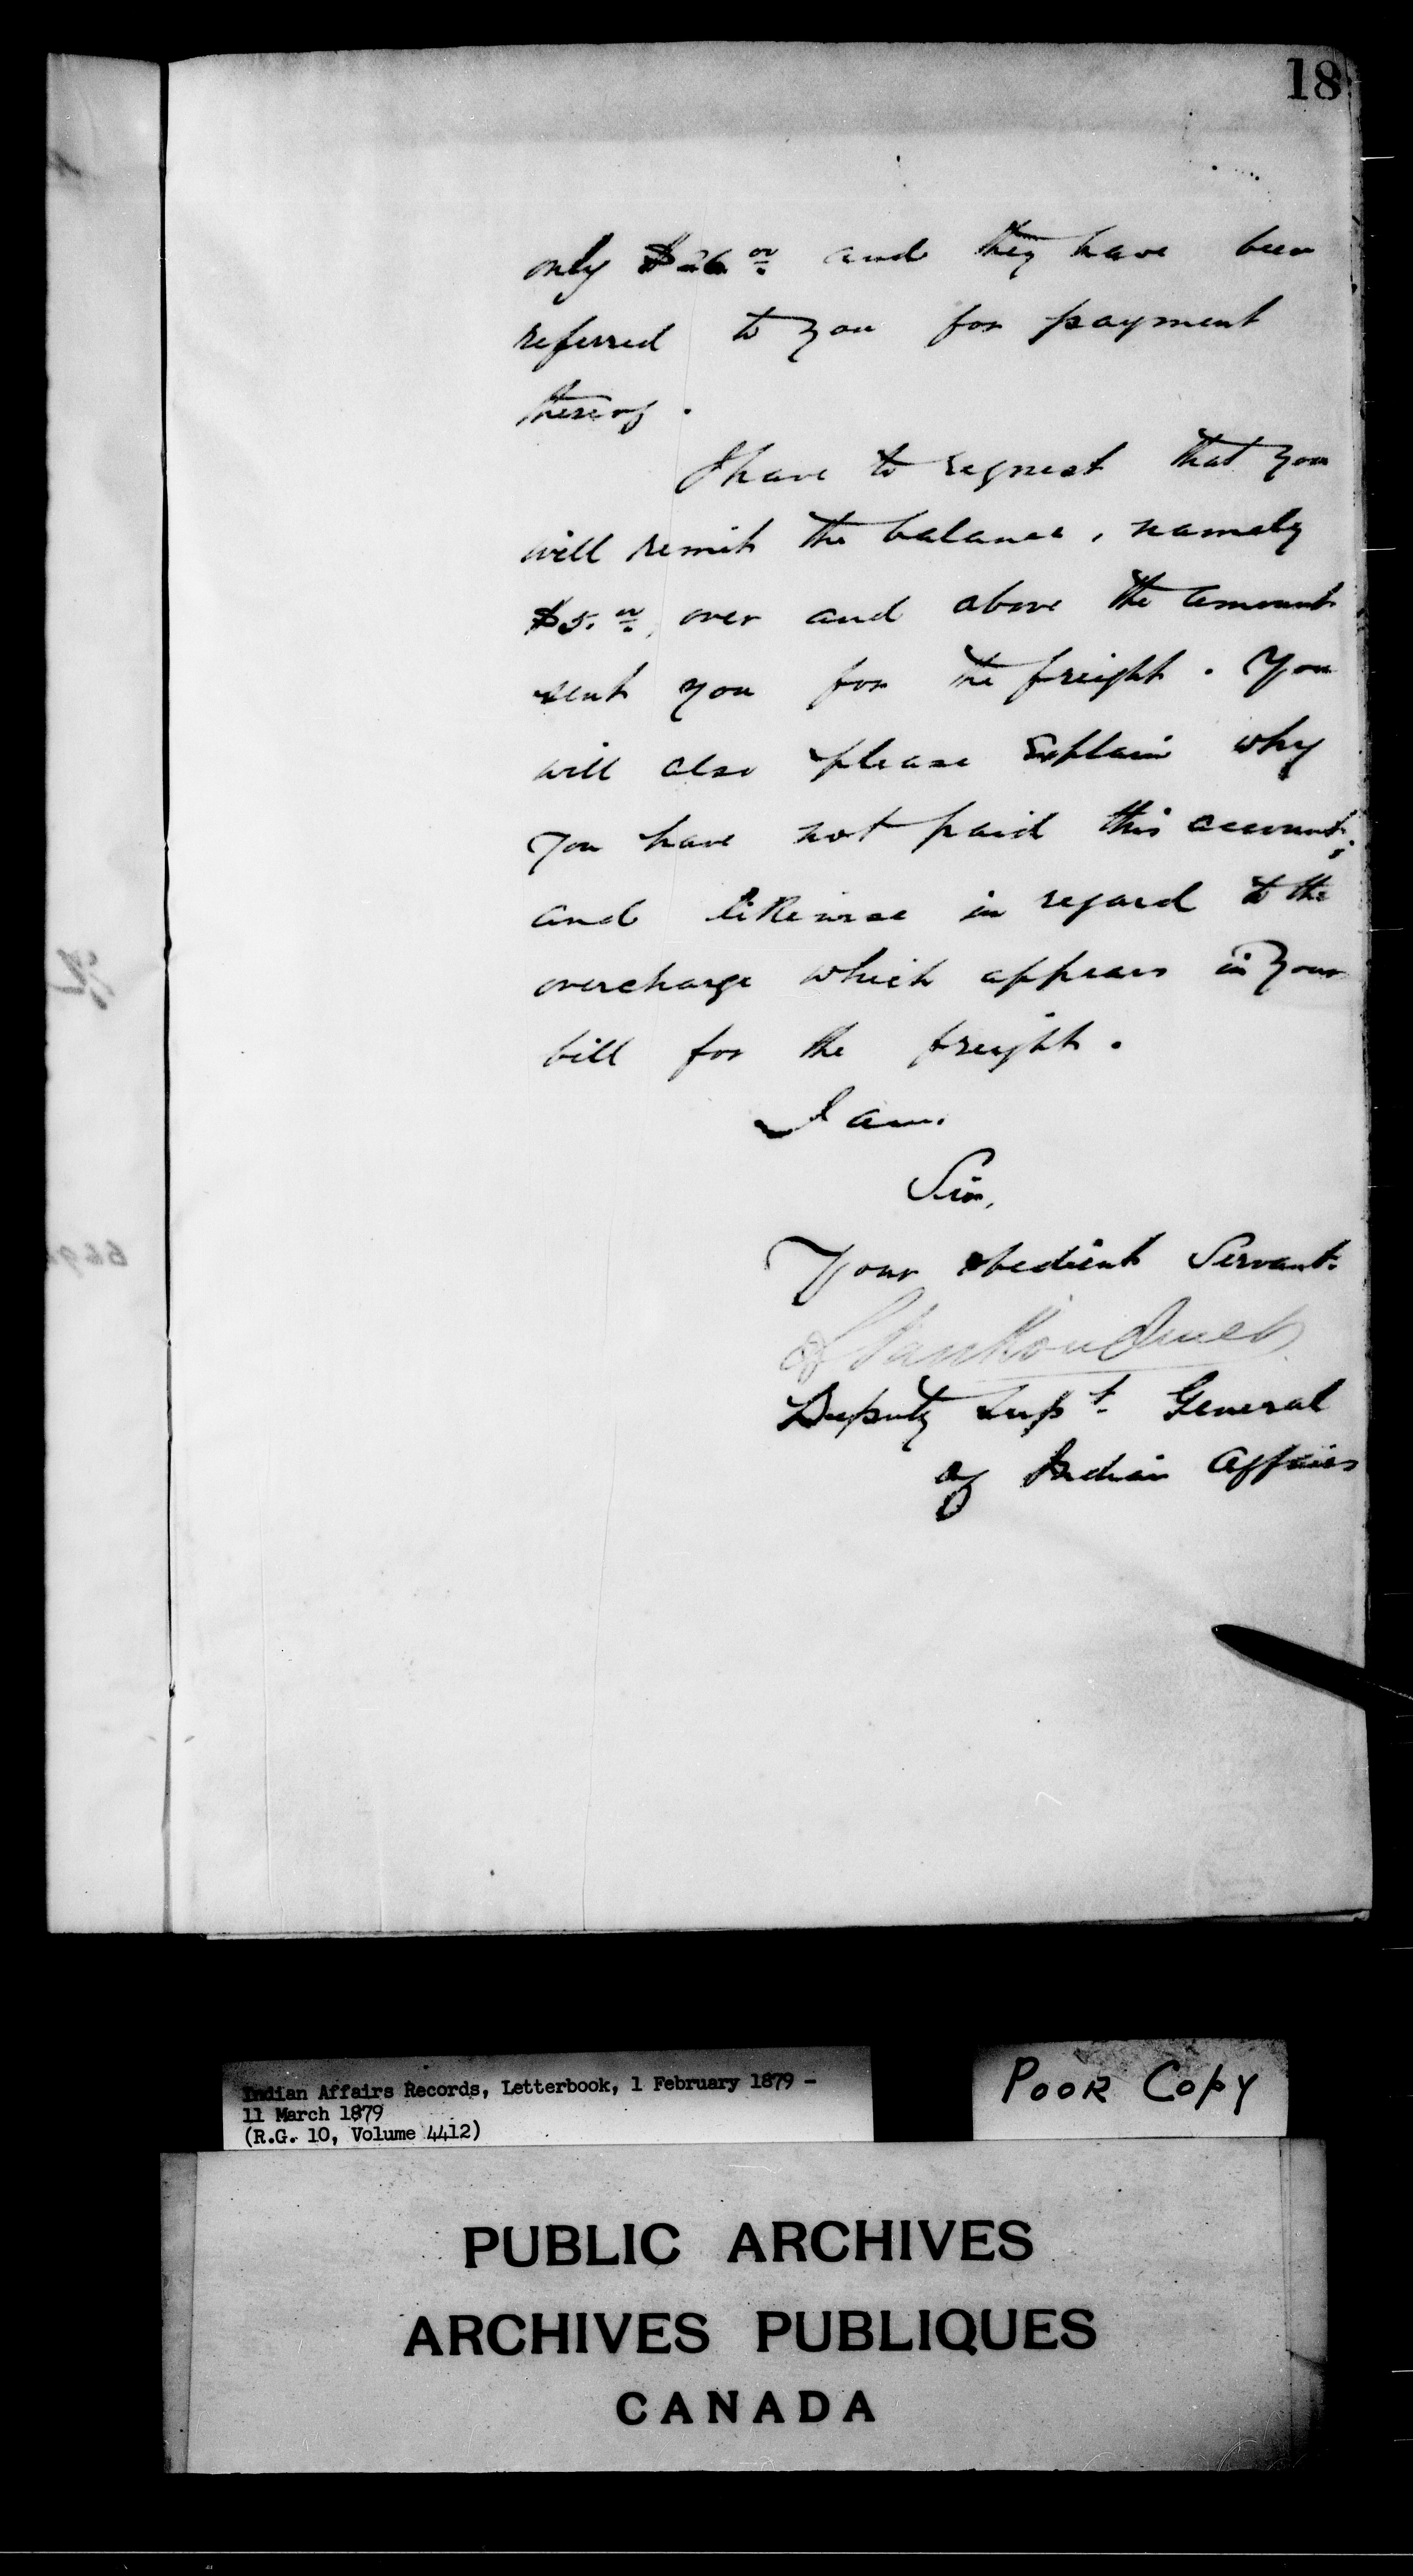 18
only $26.00 and they have been
referred to you for payment
thereof.
I have to request that you
will remit the balance, namely
$5.00, over and above the amount
sent you for the freight. You
will also please explain why
you have not paid this account;
and likewise in regard to the
overcharge which appears in your
bill for the freight.
I am,
Sir,
Your obedient Servant.
L VanKoughnet
Deputy Supt. General
of Indian Affairs
Indian Affairs Records, Letterbook, 1 February 1879 -
11 March 1879
(R.G. 10, Volume 4412)
POOR COPY
PUBLIC ARCHIVES
ARCHIVES PUBLIQUES
CANADA